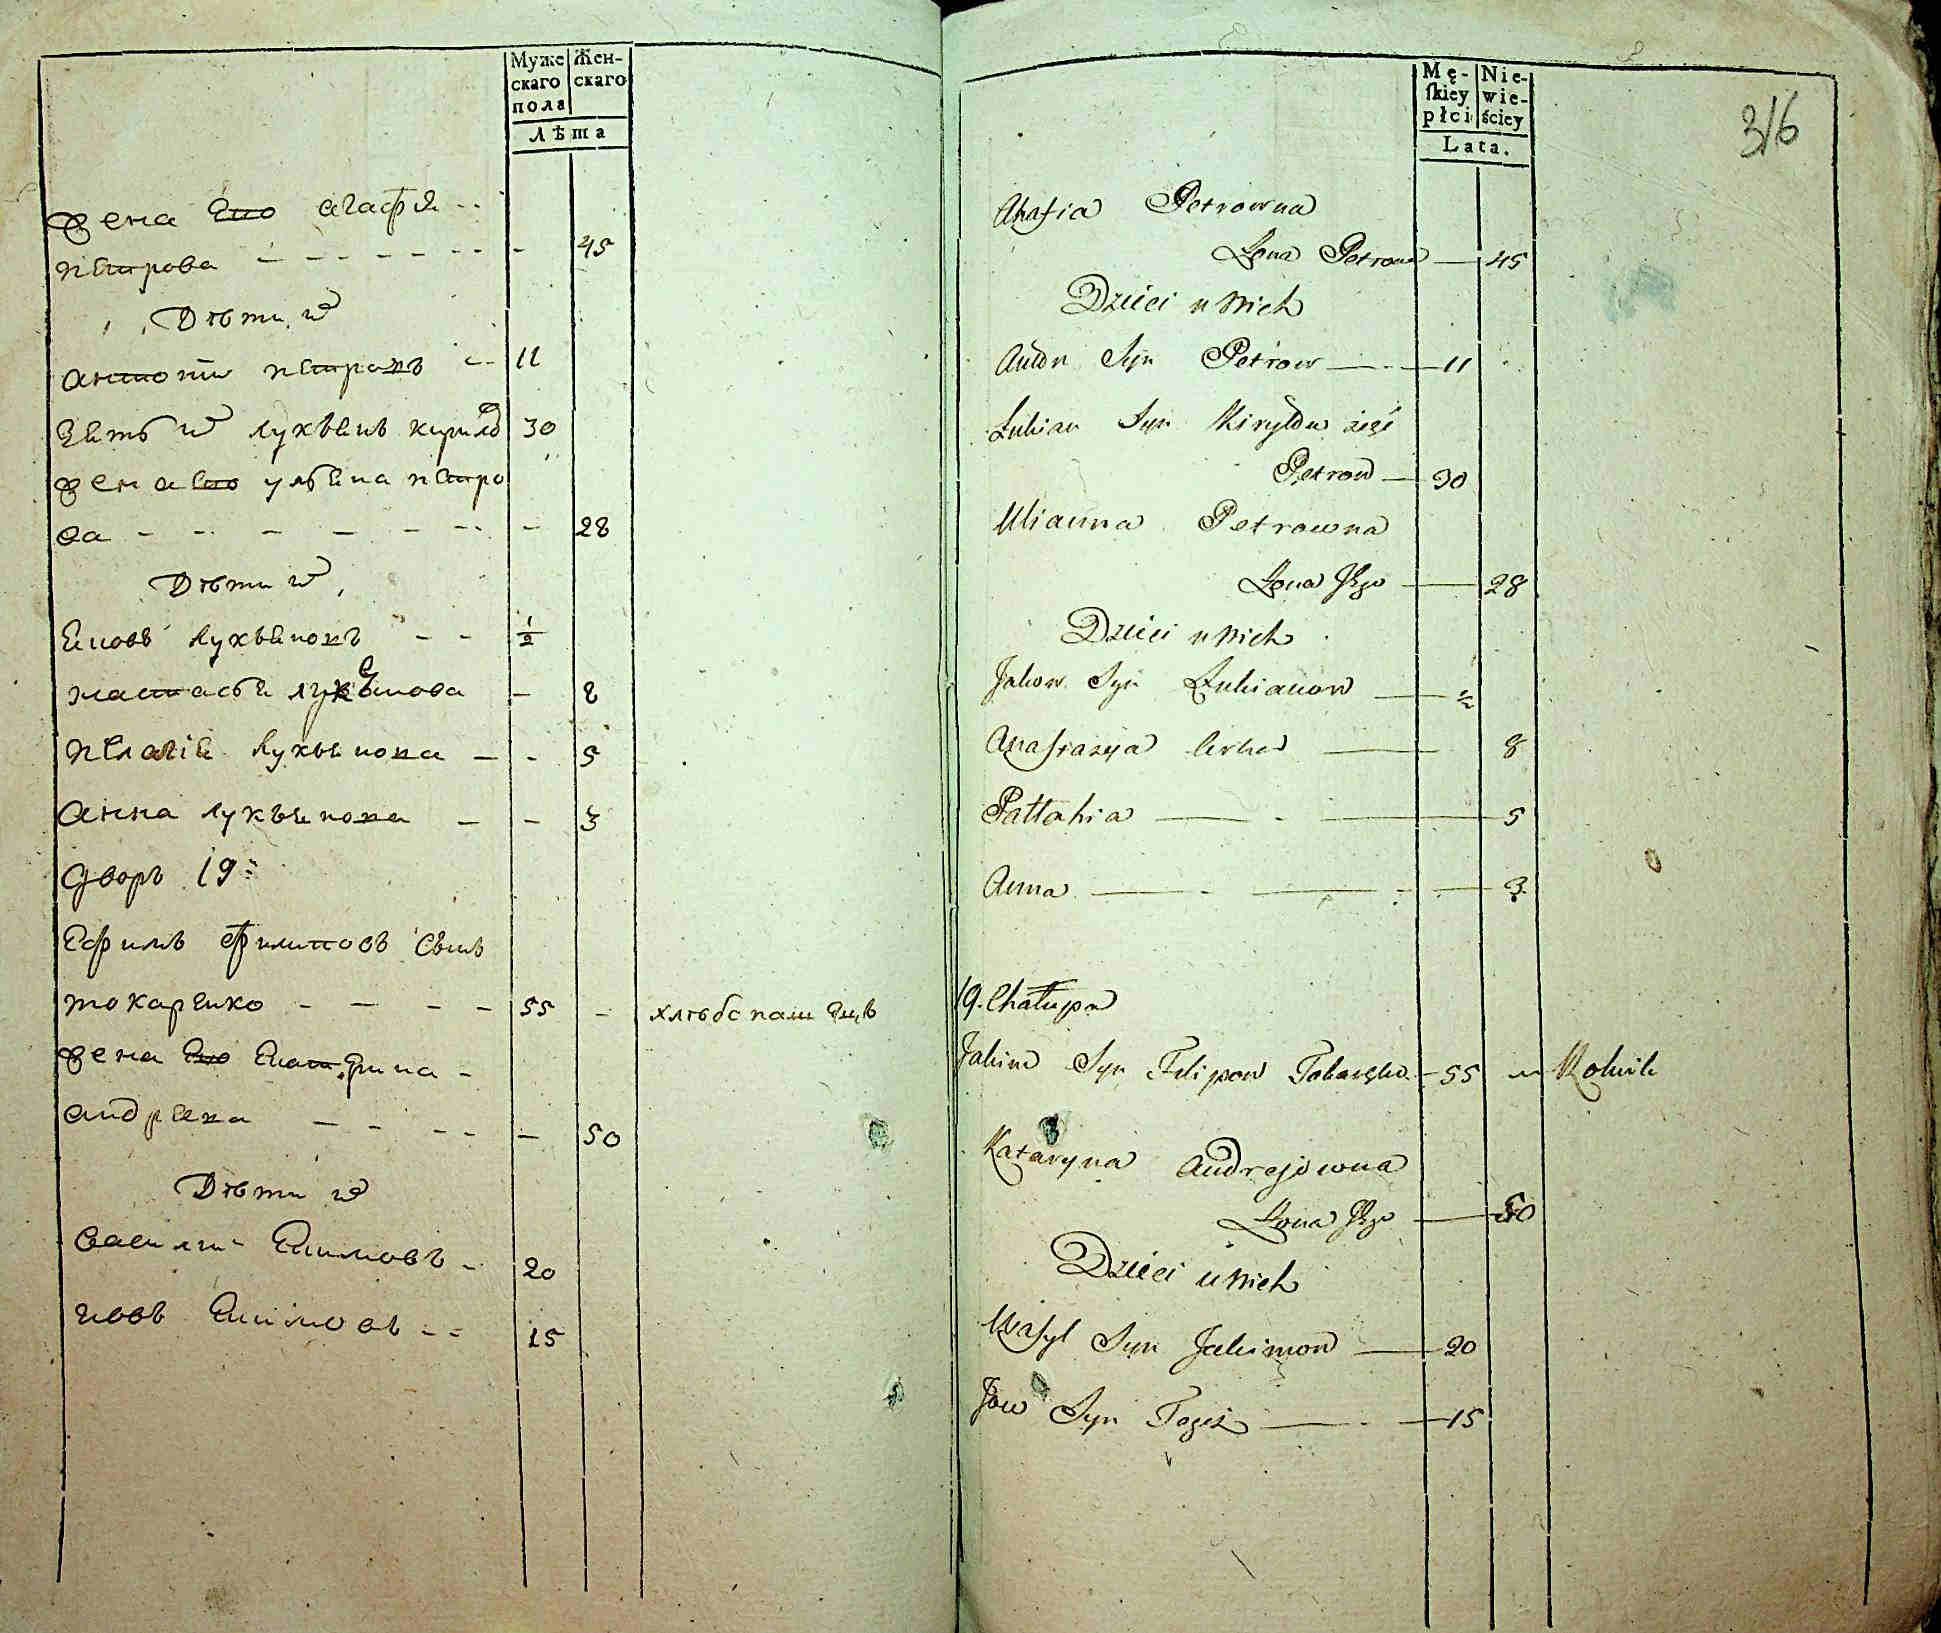 Муже
скаго
пола
Жен-
скаго
Лѣта
жена Его агафія
петрова 45
Дѣти их
антонъ петровъ 11
зять их лукъянъ кирило 30
жена Его улѣяна петро
ва 28
Дѣти их
Еиовъ лукъяновъ 1/2
настасья лукъянова 8
пелагія лукъянова 5
анна лукъянова 3
дворъ 19:
Ефимъ филиповъ сынъ
токаренко 55 хлѣбопашецъ
жена Его Екатерина
андреева 50
Дѣти их
василий Екимовъ 20
иовъ Екимовъ 15
Mę-
ſkiey
płci
Nie-
wie-
ściey
Lata.
316
Ahafia Petrowna
Żona Petrowa 45
Dzieci u Nich
Anton Syn Petrow 11
Łukian Syn Kiryłow zięć
Petrow 30
Ulianna Petrowna
Żona Jego 28
Dzieci u Nich
Jakow Syn Łukianow 1/2
Anastazya Corka 8
Pałłahia 5
Anna 3
19. Chałupa
Jakim Syn Filipow Tokarenko 55 Rolnik
Kataryna Andrejowna
Żona Jego 50
Dzieci u Nich
Wasyl Syn Jakimow 20
Jow Syn Tegoż 15